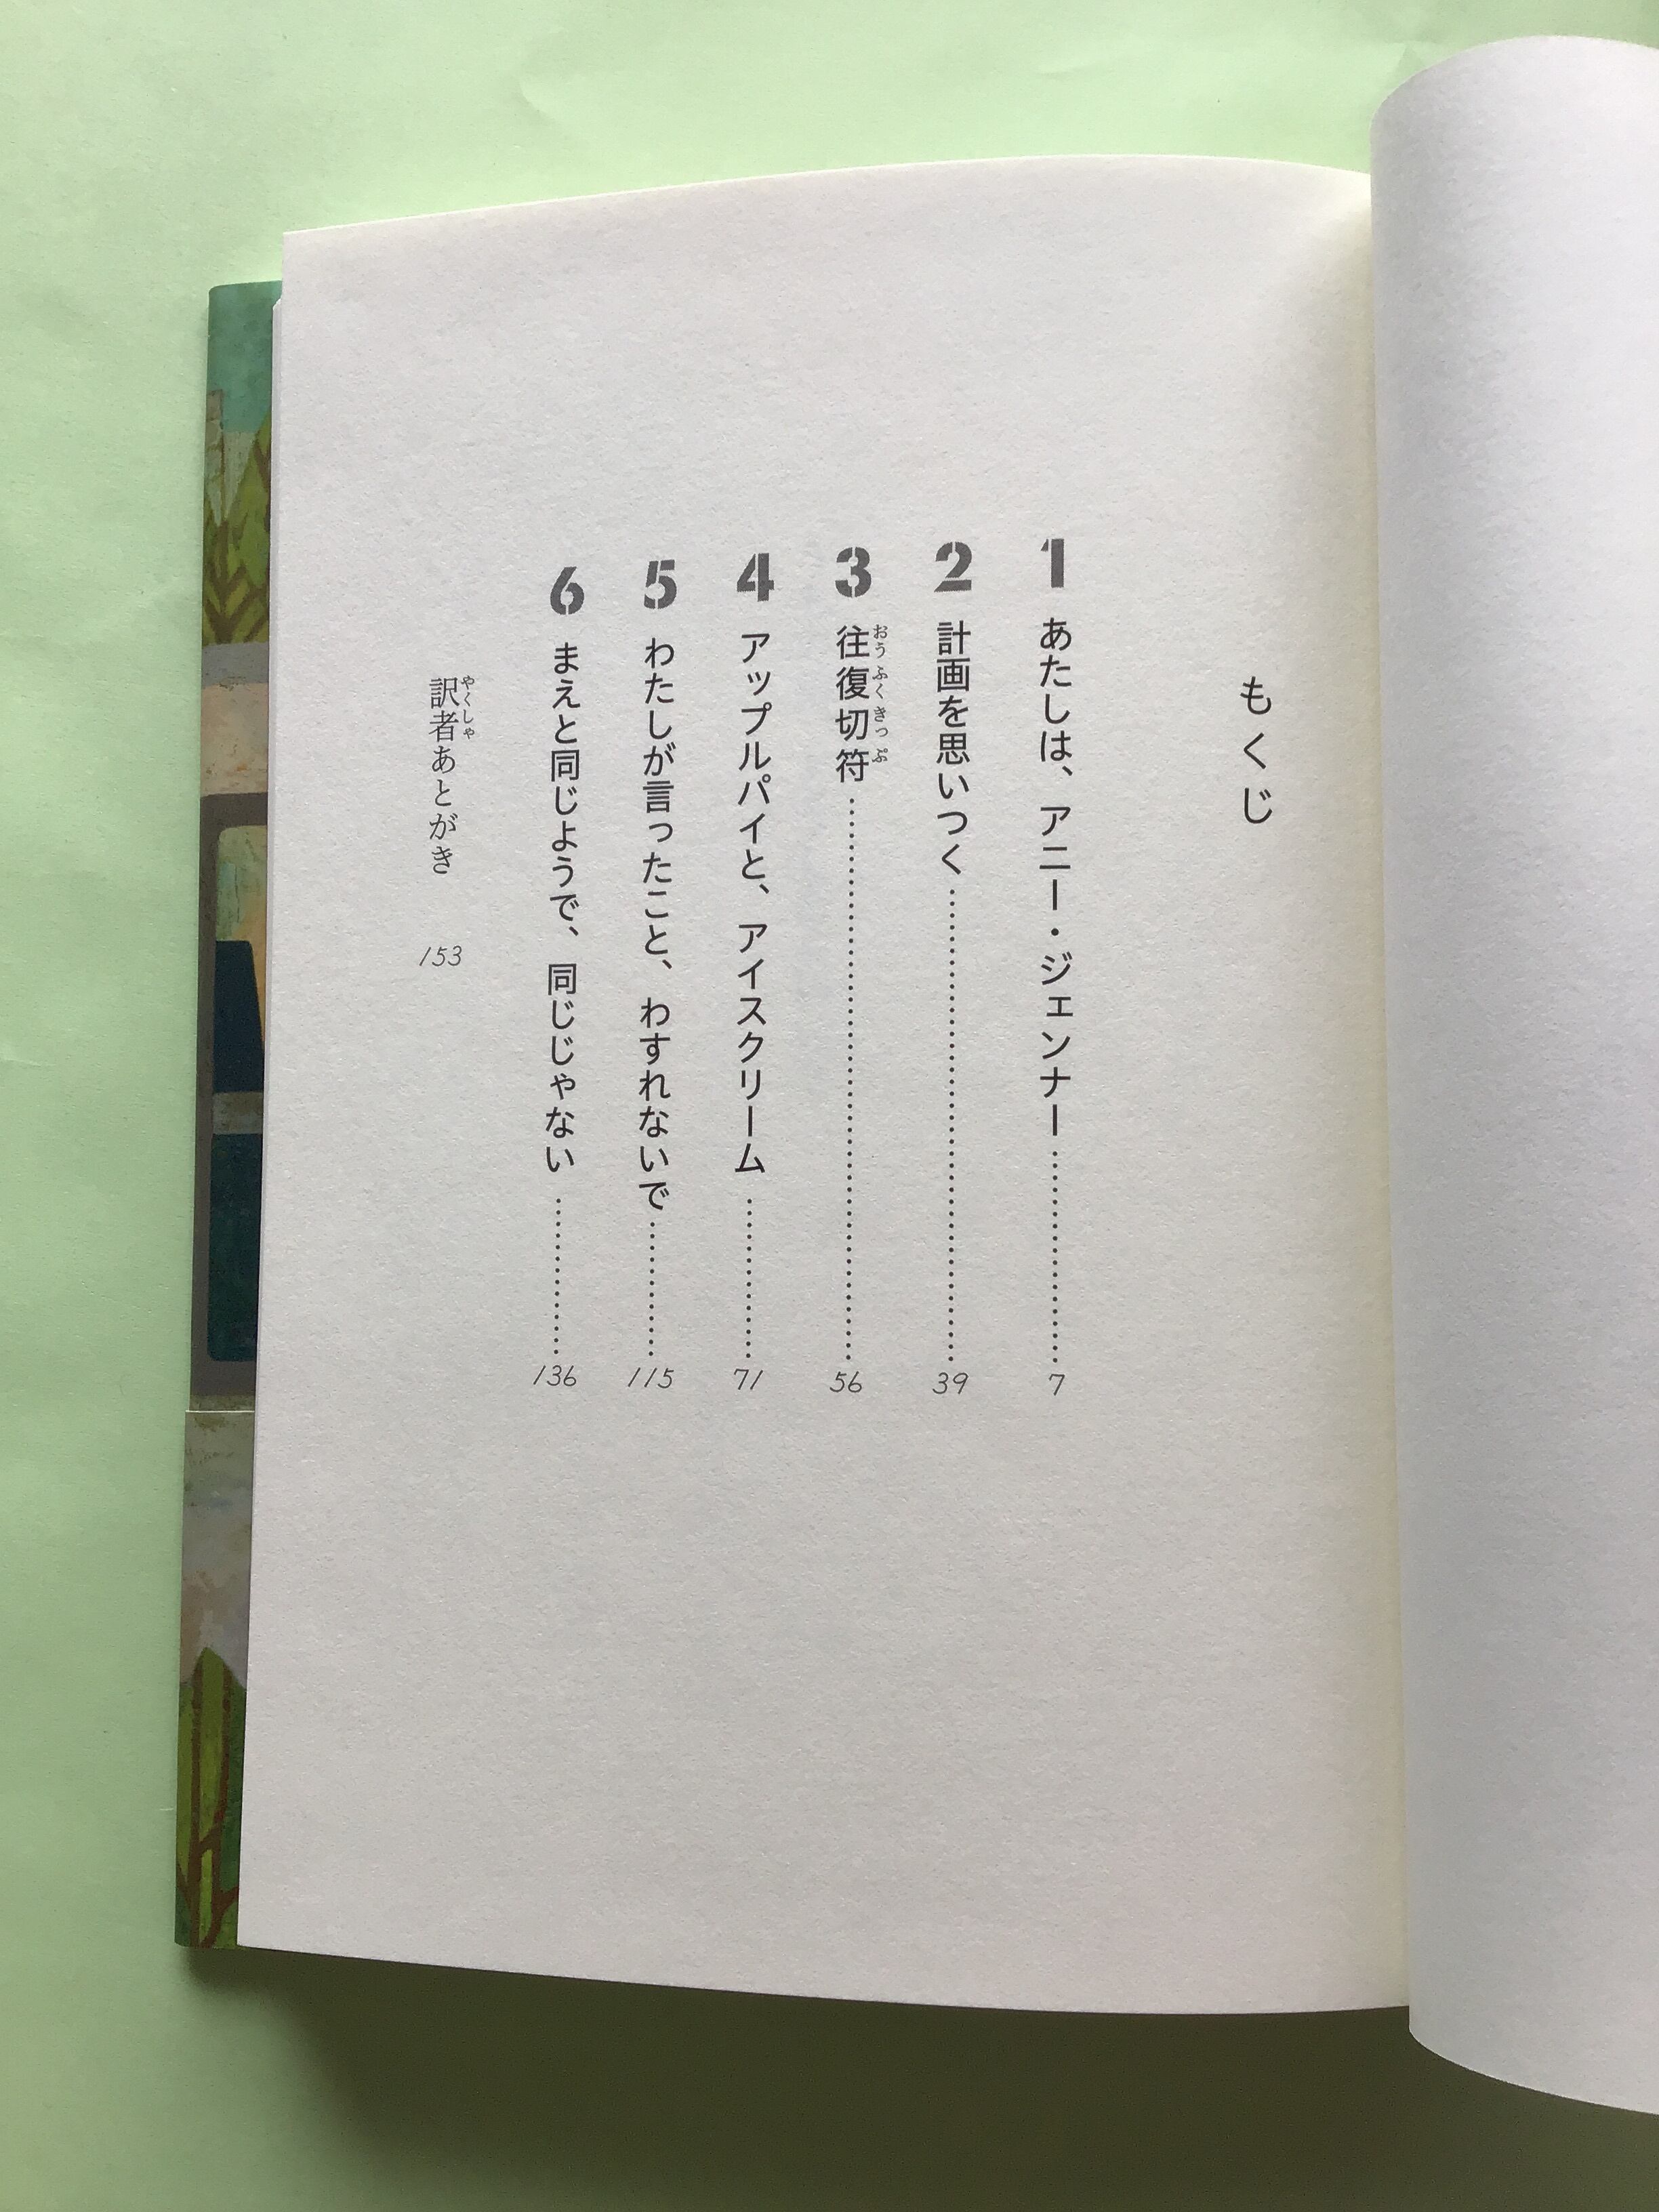 もくじ
1 あたしは、アニー・ジェンナー……………… 7
2 計画を思いつく……………………………… 39
3 往復切符……………………………… 56
おうふくきっぷ
4 アップルパイと、アイスクリーム……………… 71
5 わたしが言ったこと、わすれないで……………… 115
6 まえと同じようで、同じじゃない……………… 136
訳者あとがき 153
やくしゃ